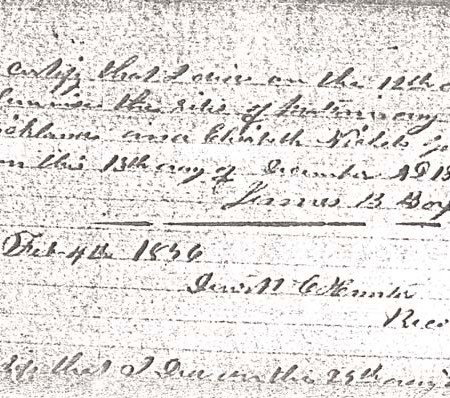 certify that I did on the 12th
the rites of matrimony
and Elisabeth Nickels
on this 13th day of December AD 18
James B Boy
Feb 4th 1856
Dewitt C Hunter
Reco
that I Did on the 25th day